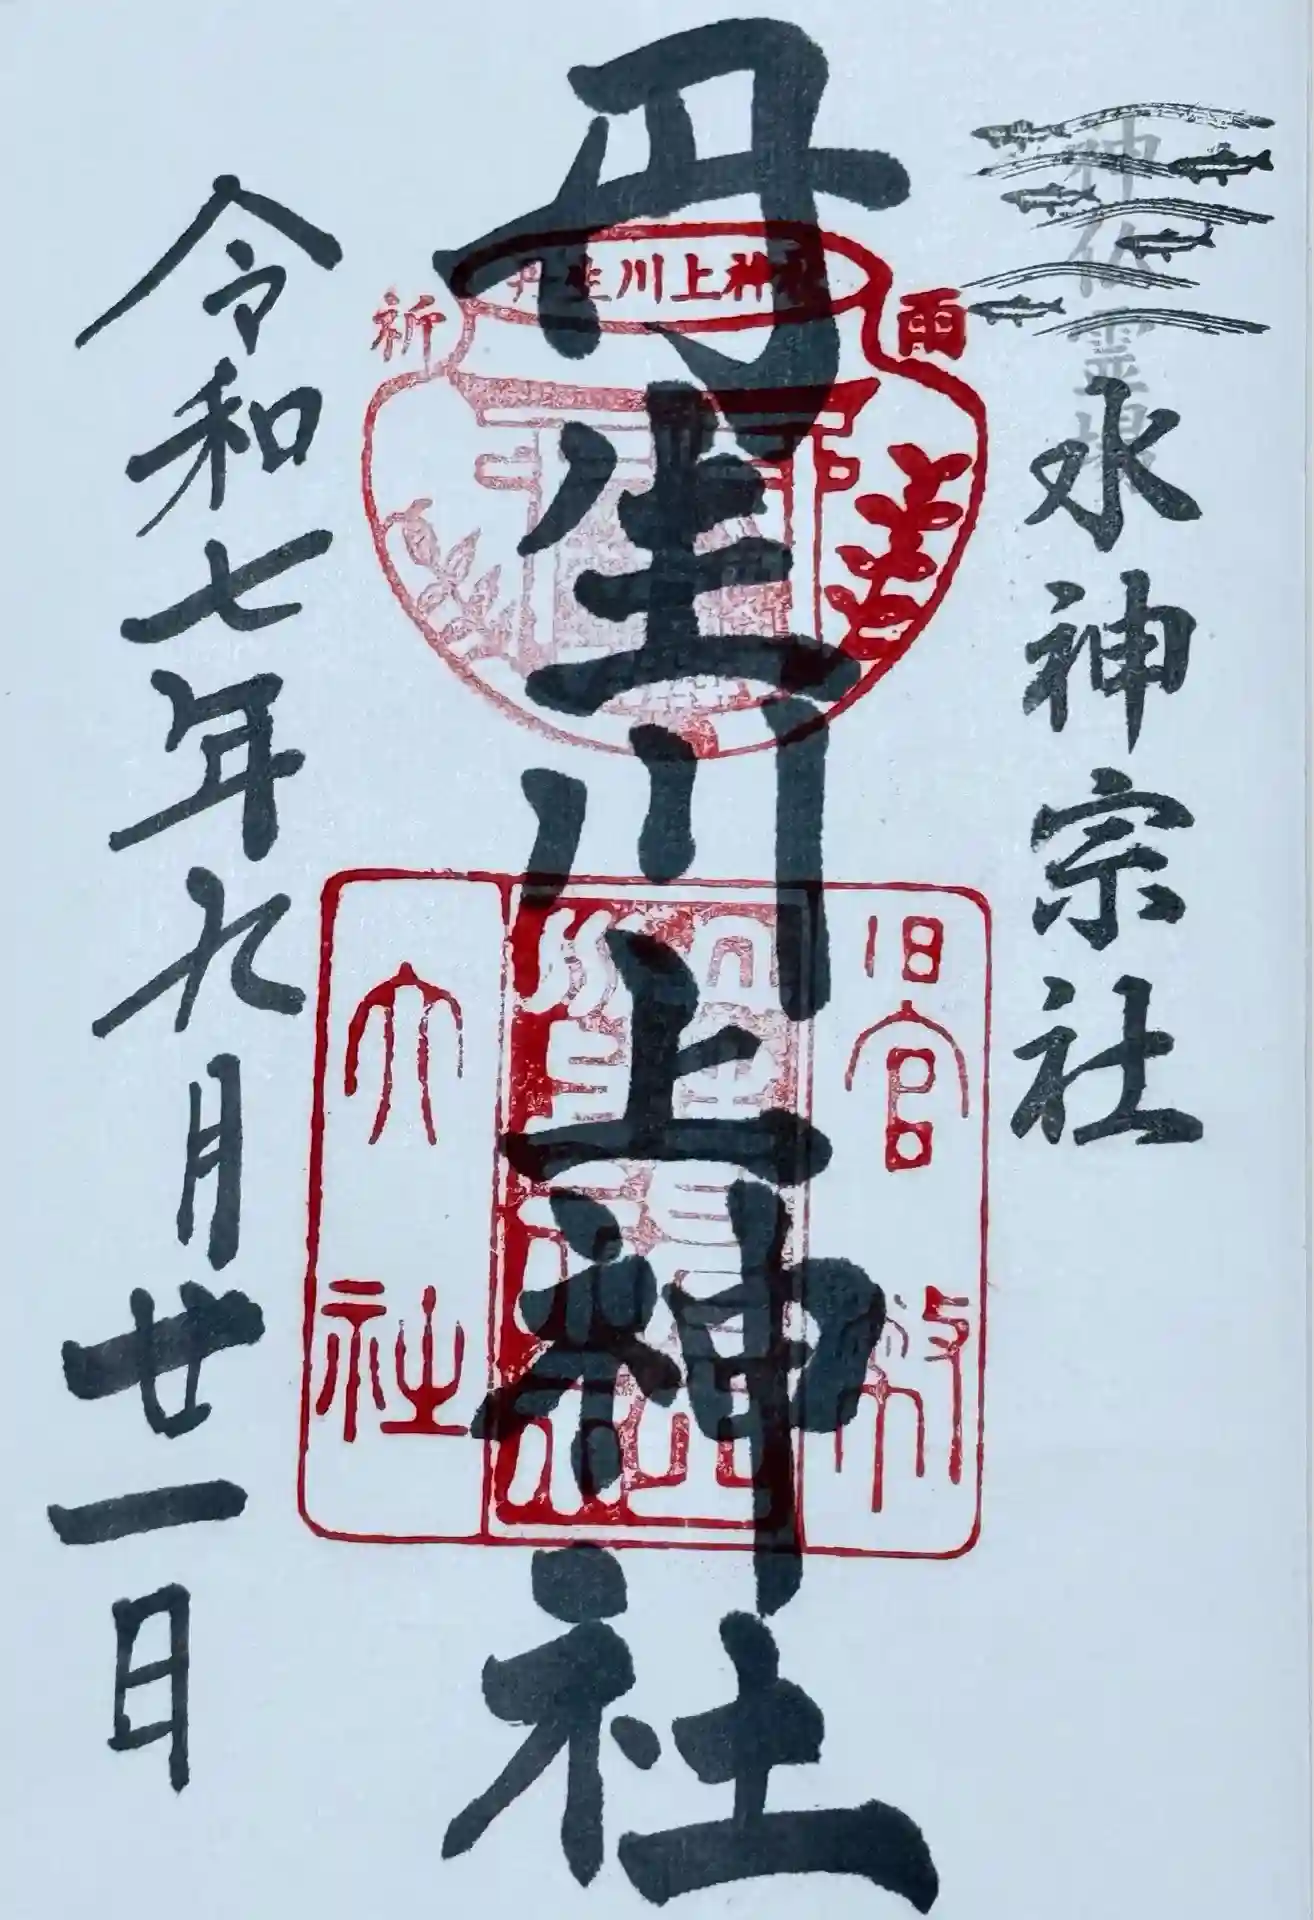 神仏霊場
水神宗社
丹生川上神社
丹生川上神社
祈雨
旧官幣
丹生川上神社
大社
令和七年九月廿一日